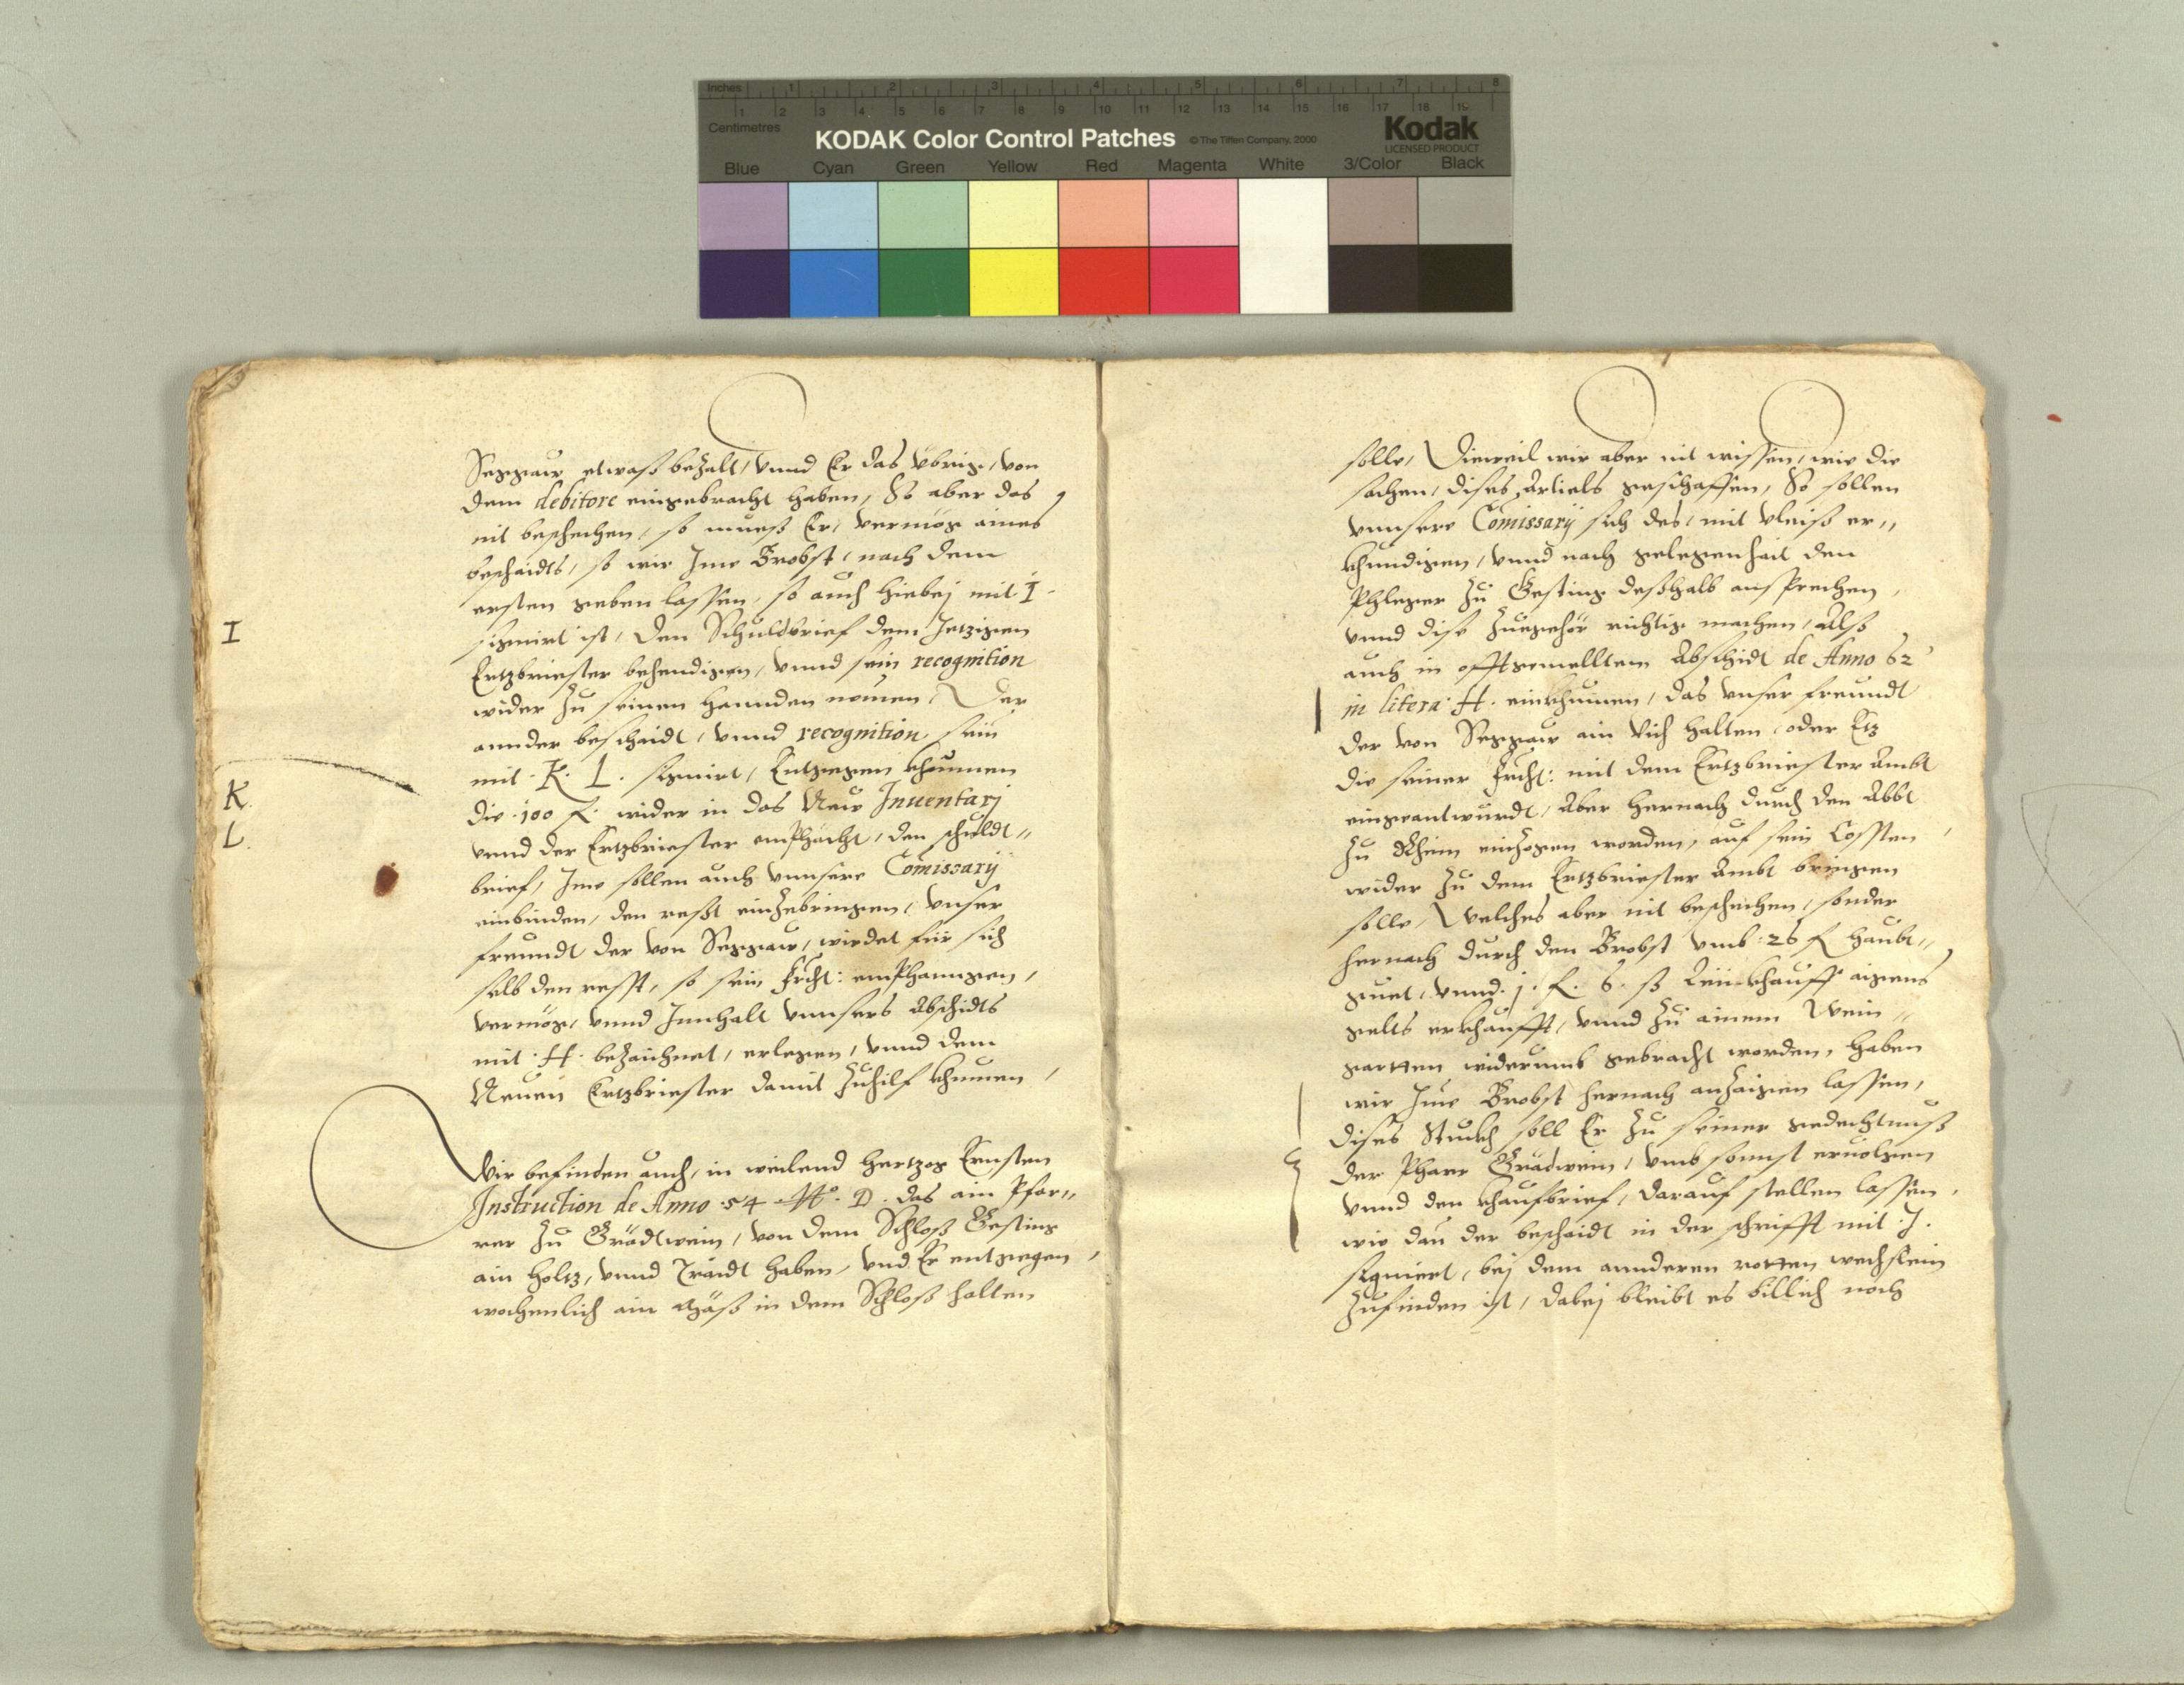 Inches 1 2 3 4 5 6 7 8
1 2 3 4 5 6 7 8 9 10 11 12 13 14 15 16 17 18 19
Centimetres
KODAK Color Control Patches © The Tiffen Company, 2000
Kodak
LICENSED PRODUCT
Blue Cyan Green Yellow Red Magenta White 3/Color Black
Seggaw etwaß bezalt, vnnd Er das vbrig, von
dem debitore eingebracht haben, So aber das
nit beschechen, so mueß Er, vermög aines
beschaidts, so wir Ime Brobst, nach dem
ersten geben lassen, so auch hiebej mit I
signirt ist, Den Schuldbrief dem Jetzigen
Ertzbriester behendigen, vnnd sein recognition
wider zu seinen hannden nemen, Der
annder beschaidt, vnnd recognition sein
mit K. L. signirt, Entgegen khumen
die 100 f. wider in das New Inuentarj
vnnd der Ertzbriester emphächt, den schuldt„
brief, Ime sollen auch vnnsere Comissarij
einbinden, den rest einzebringen, Vnser
freundt der von Seggaw, wirdet für sich
selb den resst, so sein Frdht: emphanngen,
vermög, vnnd Innhalt vnnsers Abschidts
mit H. bezaichnet, erlegen, vnnd dem
Neuen Ertzbriester damit zuhilf khumen,
I
K.
L.
Wir befinden auch, in weilend Hertzog Ernsten
Instruction de Anno 54 D. das ain Pfar„
rer zu Grädtwein, von dem Schloß Gesting
ain holtz, vnnd Traidt haben, vnd Er entgegen,
wochenlich ain Mäß in dem Schloß halten
solle, Dieweil wir aber nit wissen, wie die
sachen, dises Articls geschaffen, So sollen
vnnsere Comissarij sich des, mit vleiß er„
khundigen, vnnd nach gelegenhait den
Phleger zu Gesting deßhalb ansprechen,
vnnd dise zuegehör richtig machen, Also
auch in offtgemelltem Abschidt de Anno 62
in litera H. einkhumen, das vnser freundt
der von Seggaw ain Vich halten, oder
die seiner Frdht: mit dem Ertzbriester Ambt
eingeantwurdt, Aber hernach durch den Abbt
zu Rhein einzogen worden, auf sein Cossten,
wider zu dem Ertzbriester Ambt bringen
solle, Welches aber nit beschechen, sonder
hernach durch den Brobst vmb 26 f haubt„
guet, vnnd j. f. 6. ß Leükhauff aigens
gelts erkhaufft, vnnd zu ainem Wein„
gartten widerumb gebracht worden, haben
wir Ime Brobst hernach anzaigen lassen,
dises Stuckh soll Er zu seiner gedechtnuß
der Pharr Grädwein, vmb sonnst eruolgen
vnnd den khaufbrief, darauf stellen lassen,
wie dan der beschaidt in der schrifft mit J.
signiert, bej dem annderen rotten wechslein
zufinden ist, dabej bleibt es billich noch